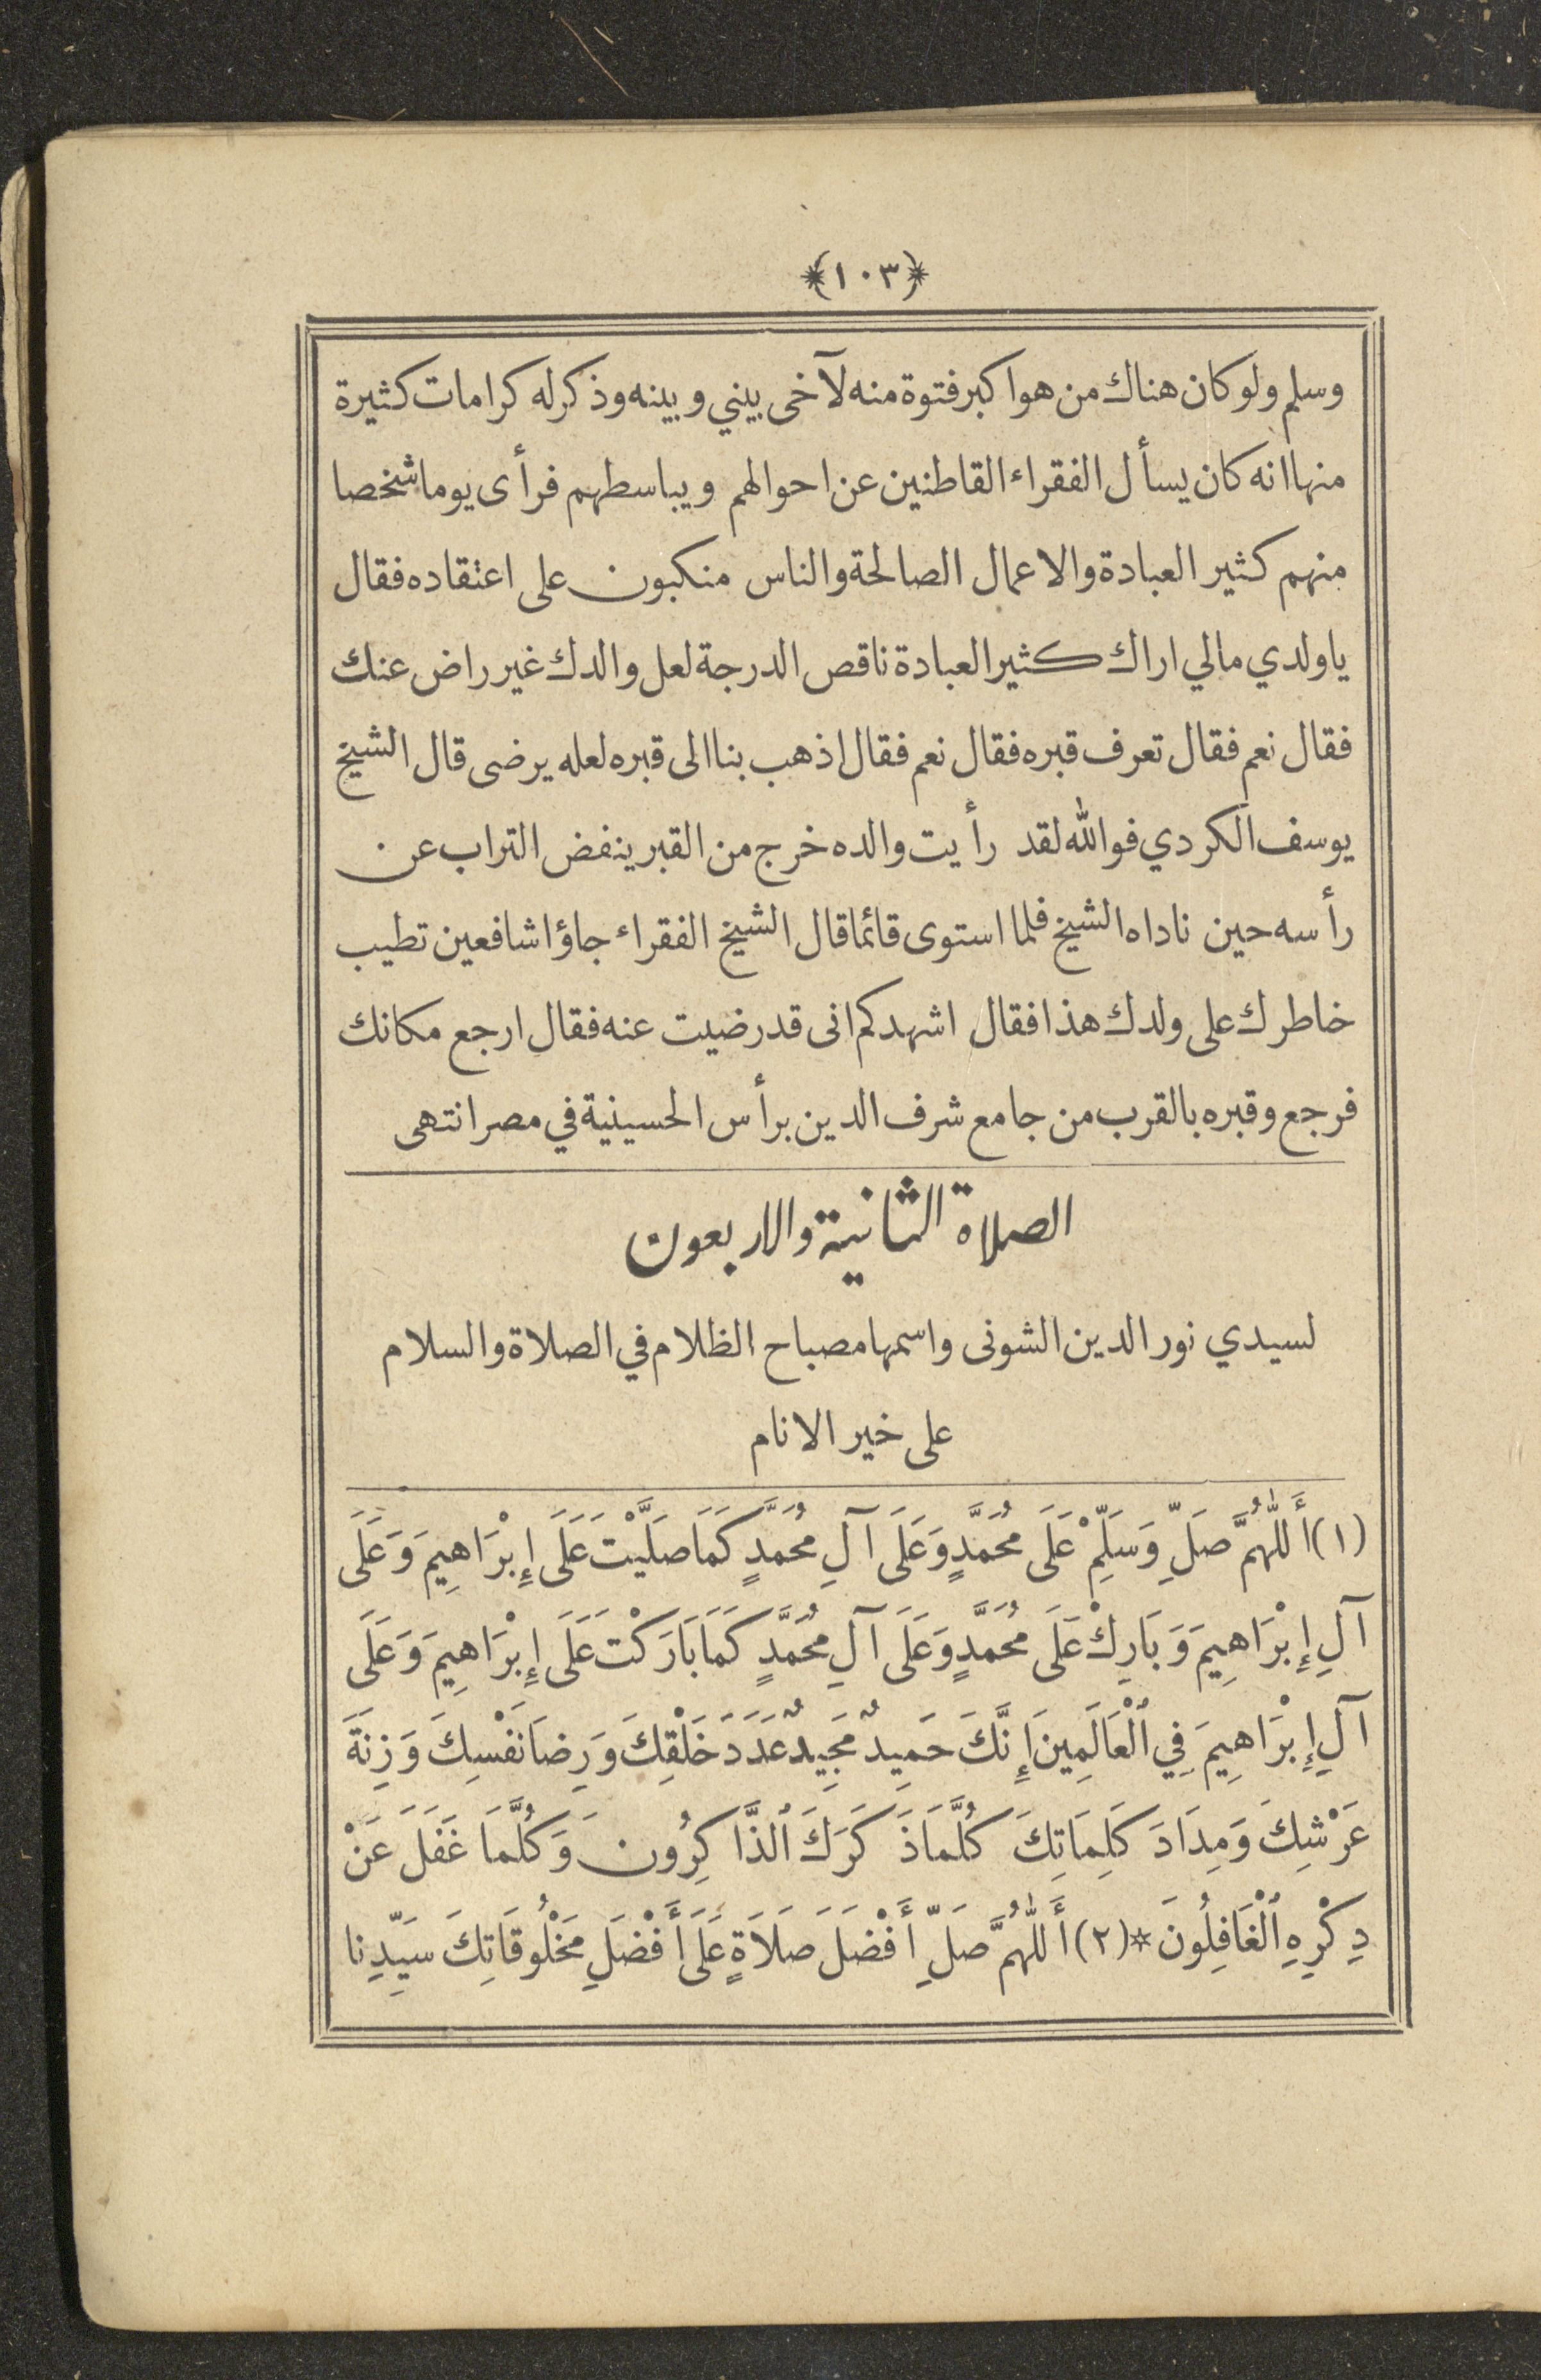 ﴿١٠٣﴾
وسلم ولو كان هناك من هو اكبر فتوة منه لآخى بيني وبينه وذكر له كرامات كثيرة
منها انه كان يسأل الفقراء القاطنين عن احوالهم ويباسطهم فرأى يوما شخصا
منهم كثير العبادة والاعمال الصالحة والناس منكبون على اعتقاده فقال
يا ولدي مالي اراك كثير العبادة ناقص الدرجة لعل والدك غير راض عنك
فقال نعم فقال تعرف قبره فقال نعم فقال اذهب بنا الى قبره لعله يرضى قال الشيخ
يوسف الكردي فوالله لقد رأيت والده خرج من القبر ينفض التراب عن
رأسه حين ناداه الشيخ فلما استوى قائما قال الشيخ الفقراء جاؤا شافعين تطيب
خاطرك على ولدك هذا فقال اشهدكم انى قد رضيت عنه فقال ارجع مكانك
فرجع وقبره بالقرب من جامع شرف الدين برأس الحسينية في مصر انتهى
الصلاة الثانية والاربعون
لسيدي نور الدين الشونى واسمها مصباح الظلام في الصلاة والسلام
على خير الانام
(١) أَللّٰهُمَّ صَلِّ وَسَلِّمْ عَلَى مُحَمَّدٍ وَعَلَى آلِ مُحَمَّدٍ كَمَا صَلَّيْتَ عَلَى إِبْرَاهِيمَ وَعَلَى
آلِ إِبْرَاهِيمَ وَبَارِكْ عَلَى مُحَمَّدٍ وَعَلَى آلِ مُحَمَّدٍ كَمَا بَارَكْتَ عَلَى إِبْرَاهِيمَ وَعَلَى
آلِ إِبْرَاهِيمَ فِي ٱلْعَالَمِينَ إِنَّكَ حَمِيدٌ مَجِيدٌ عَدَدَ خَلْقِكَ وَرِضَا نَفْسِكَ وَزِنَةَ
عَرْشِكَ وَمِدَادَ كَلِمَاتِكَ كُلَّمَا ذَكَرَكَ ٱلذَّاكِرُونَ وَكُلَّمَا غَفَلَ عَنْ
ذِكْرِهِ ٱلْغَافِلُونَ * (٢) أَللّٰهُمَّ صَلِّ أَفْضَلَ صَلَاةٍ عَلَى أَفْضَلِ مَخْلُوقَاتِكَ سَيِّدِنا